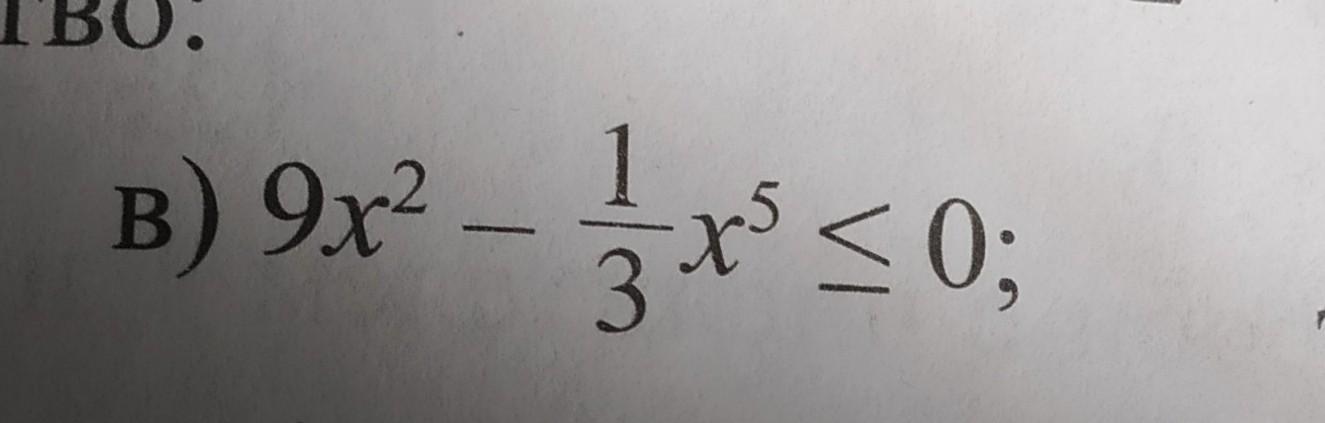 ТВО:
в) 9x² − 1/3 x⁵ ≤ 0;